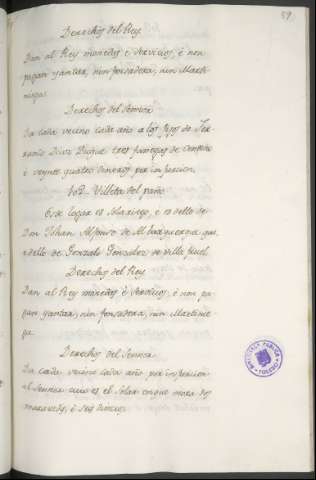 59
Derechos del Rey
Dan al Rey monedas è servicios, è non
pagan yantar, nin fonsadera, nin Marti-
niega.
Derechos del Sennor
Da cada vecino cada año a los fijos de Fer-
rando Diaz Duque tres fanegas de
è veynte quatro dineros por infurcion.
102- Villeta del paño
Este logar es solariego, è es dello de
Don Johan Alfonso de Alburquerque
è dello de Gonzalo Gonzalez de villa
Derechos del Rey
Dan al Rey monedas è servicios, è non pa-
gan yantar, nin fonsadera, nin Martinie-
ga.
Derechos del Sennor
Da cada vecino cada año por infurcion
al Sennor cuio es el Solar en que mora dos
maravedis, è seis dineros.
BIBLIOTECA PUBLICA
TOLEDO